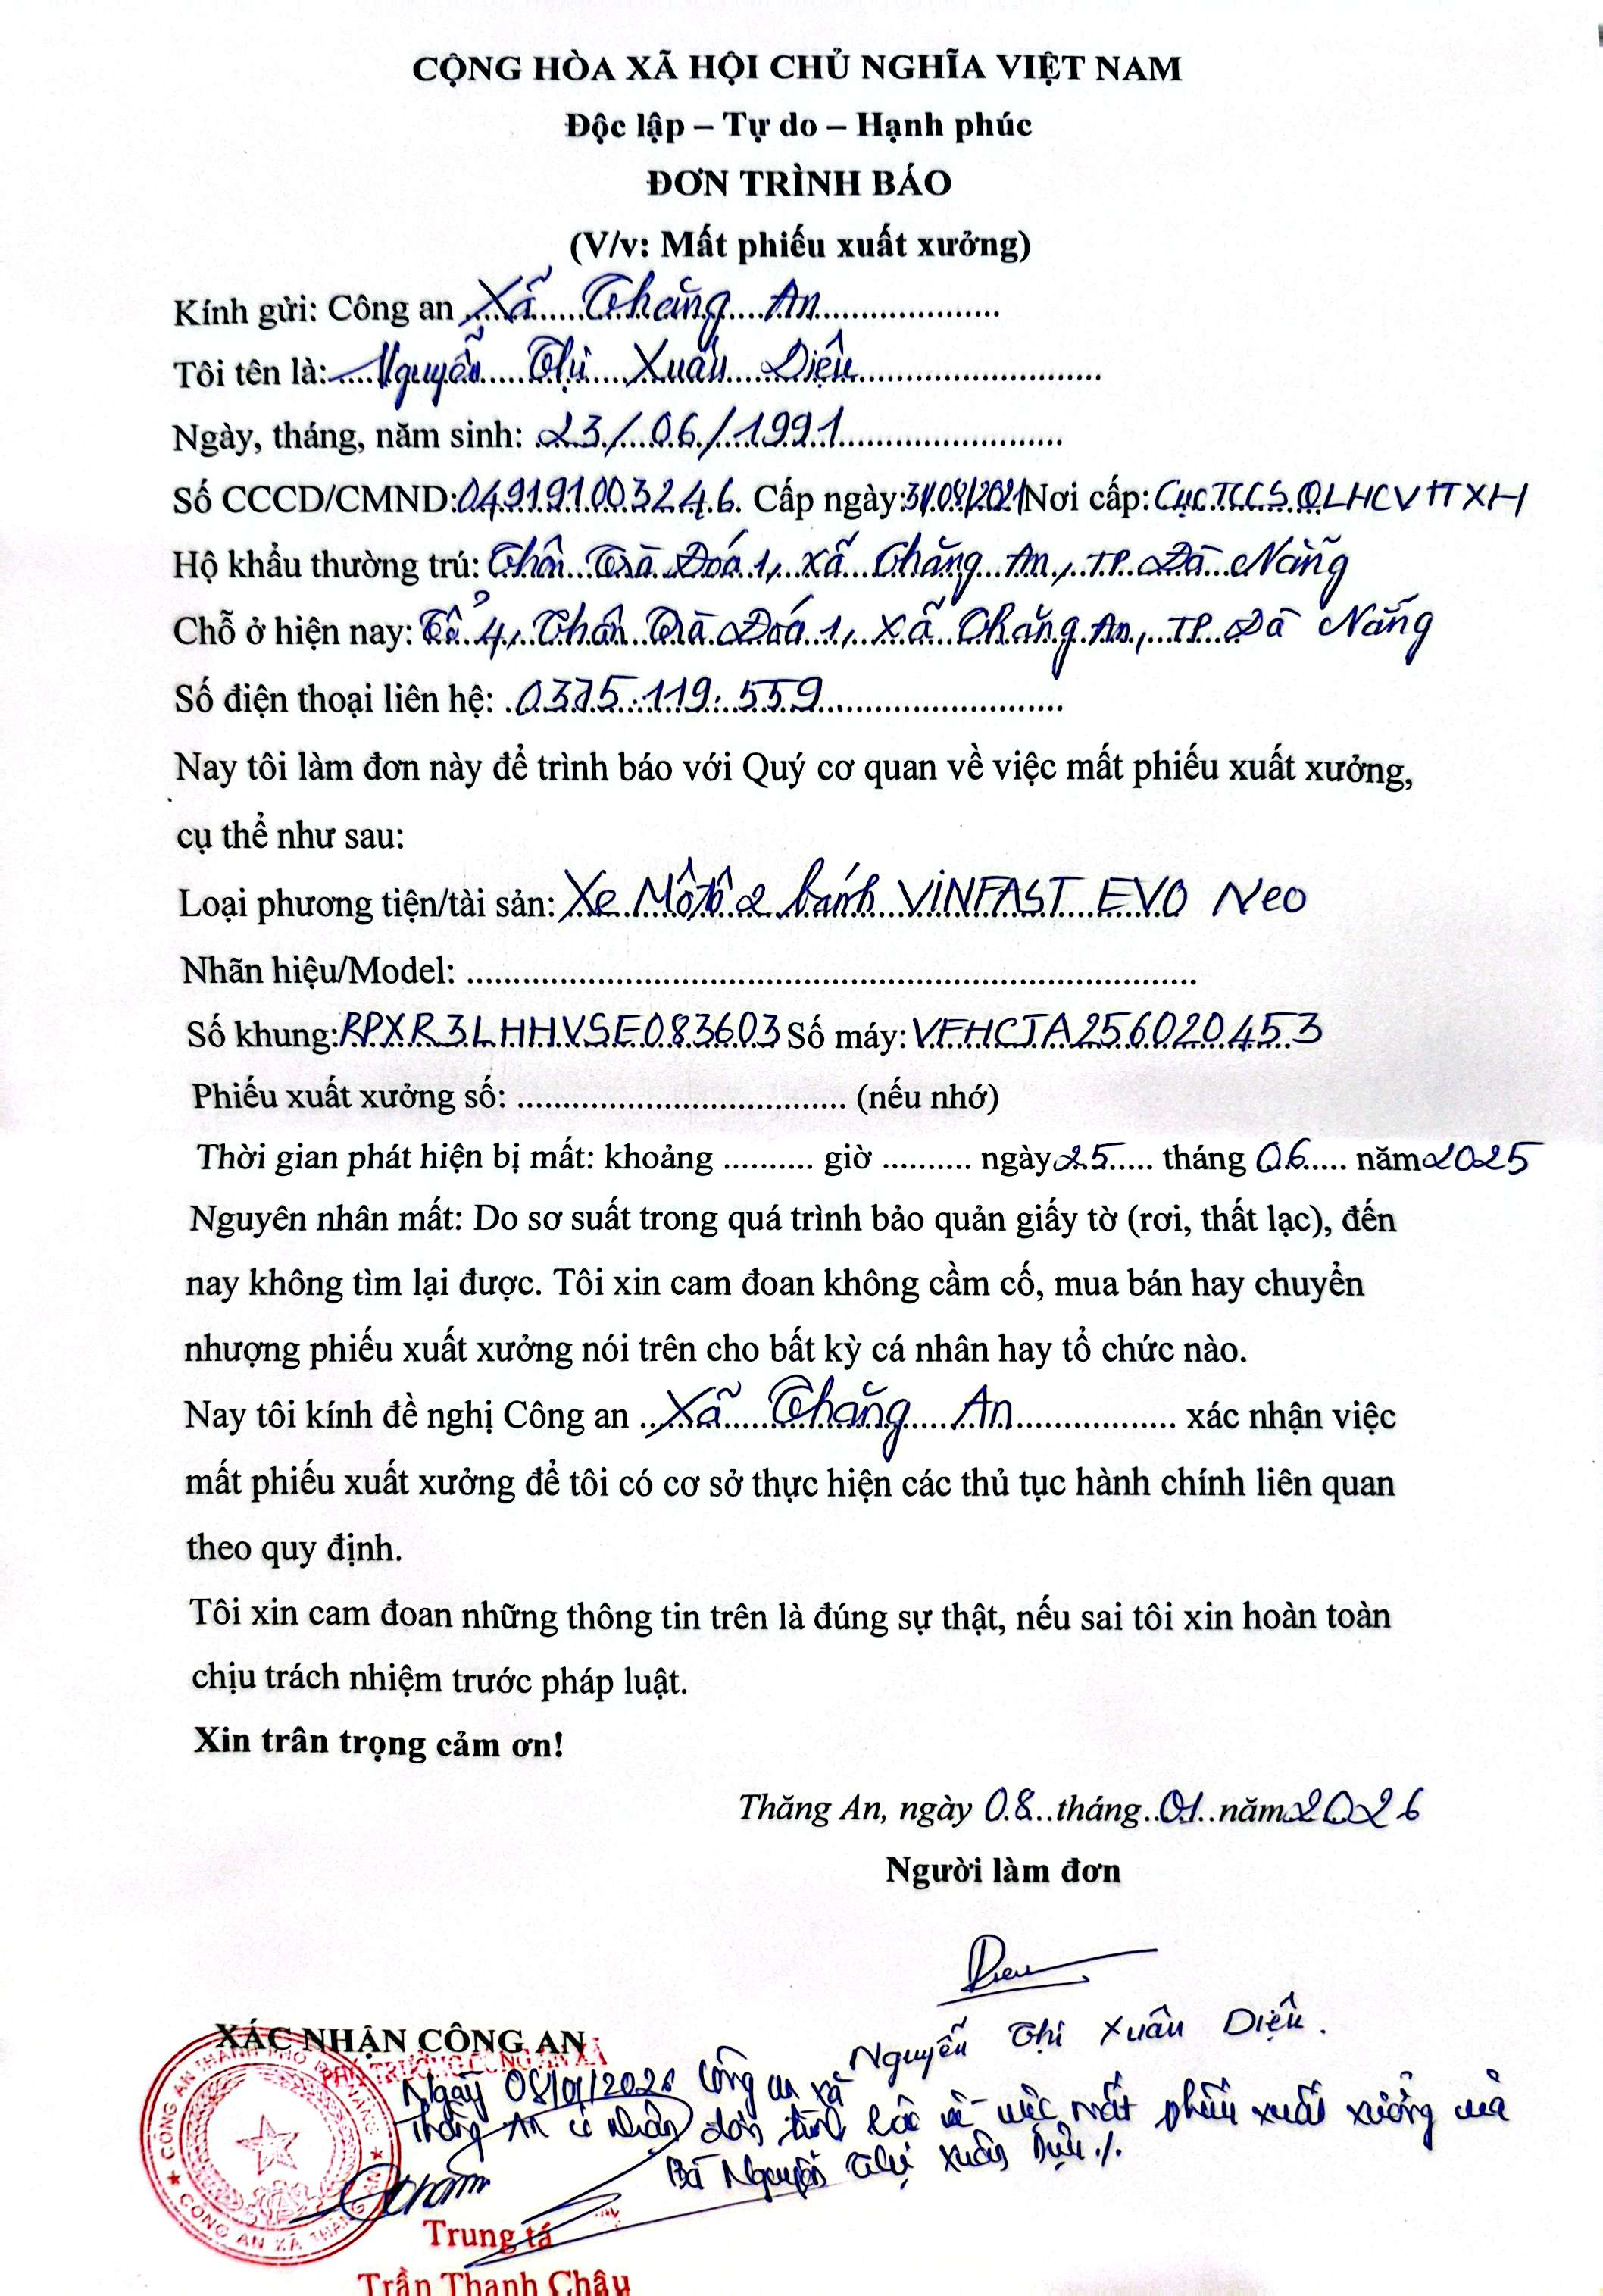 CỘNG HÒA XÃ HỘI CHỦ NGHĨA VIỆT NAM
Độc lập – Tự do – Hạnh phúc
ĐƠN TRÌNH BÁO
(V/v: Mất phiếu xuất xưởng)
Kính gửi: Công an Xã Thăng An
Tôi tên là: Nguyễn Thị Xuân Diệu
Ngày, tháng, năm sinh: 23/06/1991
Số CCCD/CMND: 049191003246. Cấp ngày: 31/08/2021 Nơi cấp: Cục TCCS QLHCVTTXH
Hộ khẩu thường trú: Thôn Trà Đoá 1, xã Thăng An, TP Đà Nẵng
Chỗ ở hiện nay: Tổ 4, Thôn Trà Đoá 1, xã Thăng An, TP Đà Nẵng
Số điện thoại liên hệ: 0375.119.559
Nay tôi làm đơn này để trình báo với Quý cơ quan về việc mất phiếu xuất xưởng,
cụ thể như sau:
Loại phương tiện/tài sản: Xe Môtô 2 bánh VINFAST EVO Neo
Nhãn hiệu/Model: ................
Số khung: RPXR3LHHVSE083603 Số máy: VFHCJA256020453
Phiếu xuất xưởng số: ................ (nếu nhớ)
Thời gian phát hiện bị mất: khoảng .......... giờ .......... ngày 25 tháng 06 năm 2025
Nguyên nhân mất: Do sơ suất trong quá trình bảo quản giấy tờ (rơi, thất lạc), đến
nay không tìm lại được. Tôi xin cam đoan không cầm cố, mua bán hay chuyển
nhượng phiếu xuất xưởng nói trên cho bất kỳ cá nhân hay tổ chức nào.
Nay tôi kính đề nghị Công an Xã Thăng An xác nhận việc
mất phiếu xuất xưởng để tôi có cơ sở thực hiện các thủ tục hành chính liên quan
theo quy định.
Tôi xin cam đoan những thông tin trên là đúng sự thật, nếu sai tôi xin hoàn toàn
chịu trách nhiệm trước pháp luật.
Xin trân trọng cảm ơn!
Thăng An, ngày 08 tháng 01 năm 2026
Người làm đơn
Nguyễn Thị Xuân Diệu.
XÁC NHẬN CÔNG AN
PHÓ TRƯỞNG CÔNG AN XÃ
Ngày 08/01/2026 Công an xã
Thăng An có nhận đơn trình báo về việc mất phiếu xuất xưởng của
Bà Nguyễn Thị Xuân Diệu ./.
CÔNG AN THÀNH PHỐ ĐÀ NẴNG
CÔNG AN XÃ THĂNG AN
Trung tá
Trần Thanh Châu